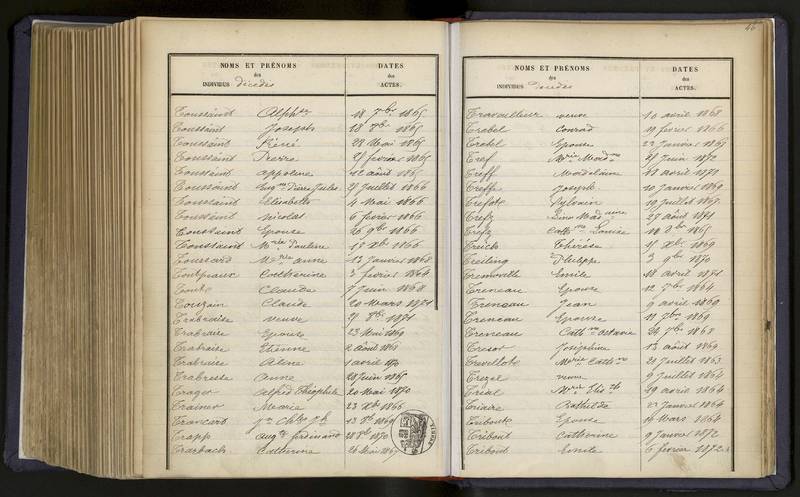 NOMS ET PRÉNOMS
des
INDIVIDUS Décédés
DATES
des
ACTES.
Toussaint Alphse 18 7bre 1865
Toussaint Joseph 18 8bre 1865
Toussaint Réné 28 Mai 1865
Toussaint Pierre 25 février 1865
Toussaint appoline 12 août 1865
Toussaint Pierre Jules 25 Juillet 1866
Toussaint Elisabeth 4 Mai 1866
Toussaint Nicolas 6 février 1866
Toussaint Epouse 26 9bre 1866
Toussaint Mrie Pauline 13 Xbre 1866
Toussard Mrie anne 13 Janvier 1868
Catherine 3 février 1864
Claude 7 Juin 1868
Touzain Claude 20 Mars 1871
Trabraise veuve 8bre 1871
Trabraise Epouse 23 Mai 1869
Trabraise Etienne 2 août 1868
Trabraise Aline 1 avril 1870
Trabresse Anne 20 Juin 1865
Trager alfred Théophile 20 Mai 1870
Marie 23 Xbre 1866
Trancart 13 8bre 1869
Trapp augte ferdinand 28 8bre 1870
Trarbach Catherine 26 Mai 1865
46
NOMS ET PRÉNOMS
des
INDIVIDUS Décédés
DATES
des
ACTES.
Travailleur veuve 10 avril 1868
Trebel Conrad 19 février 1866
Trebel Epouse 22 Janvier 1865
Tref Mrie 25 Juin 1872
Treff Madelaine 18 avril 1870
Treffe Joseph 10 Janvier 1869
Sylvain 19 Juillet 1867
27 août 1871
Cathne Louise 10 8bre 1865
Treich Thérèse 15 Xbre 1869
Treiling Philippe 3 9bre 1870
Tremouille Emile 18 avril 1871
Treneau Epouse 12 7bre 1864
Treneau Jean 9 avril 1869
Treneau Epouse 11 7bre 1869
Treneau Cathne octavie 24 7bre 1868
Tresor Joséphine 13 août 1869
Mrie Cathne 29 Juillet 1863
Trezel veuve 9 Juillet 1864
Trial Mrie Elisth 29 avril 1864
Triaire Bathilde 22 Janvier 1864
Tribout Epouse 14 Mars 1864
Tribout Catherine 9 Janvier 1872
Tribout Emile 6 février 1872